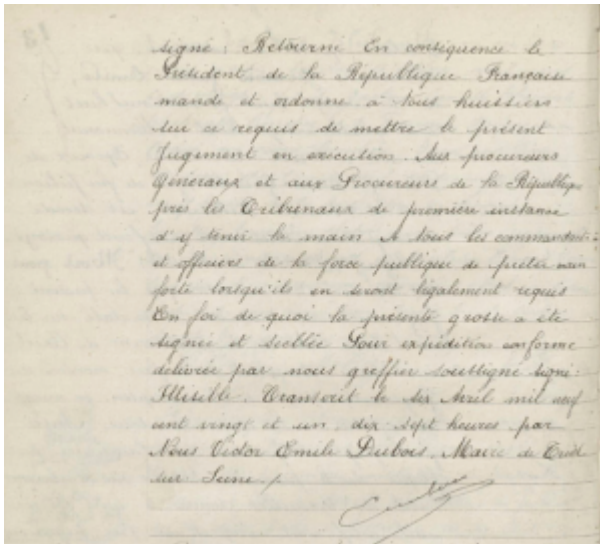 signé : Retourné En conséquence le
Président de la République Française
mande et ordonne à tous huissiers
sur ce requis de mettre le présent
Jugement en exécution. Aux procureurs
Généraux et aux Procureurs de la République
près les Tribunaux de première instance
d'y tenir la main A tous les commandants
et officiers de la force publique de prêter main
forte lorsqu'ils en seront légalement requis
En foi de quoi la présente grosse a été
signée et scellée Pour expédition conforme
délivrée par nous greffier soussigné signé :
Illisible. Transcrit le six Avril mil neuf
cent vingt et un, dix sept heures par
Nous Victor Emile Dubois, Maire de
sur Seine ./.